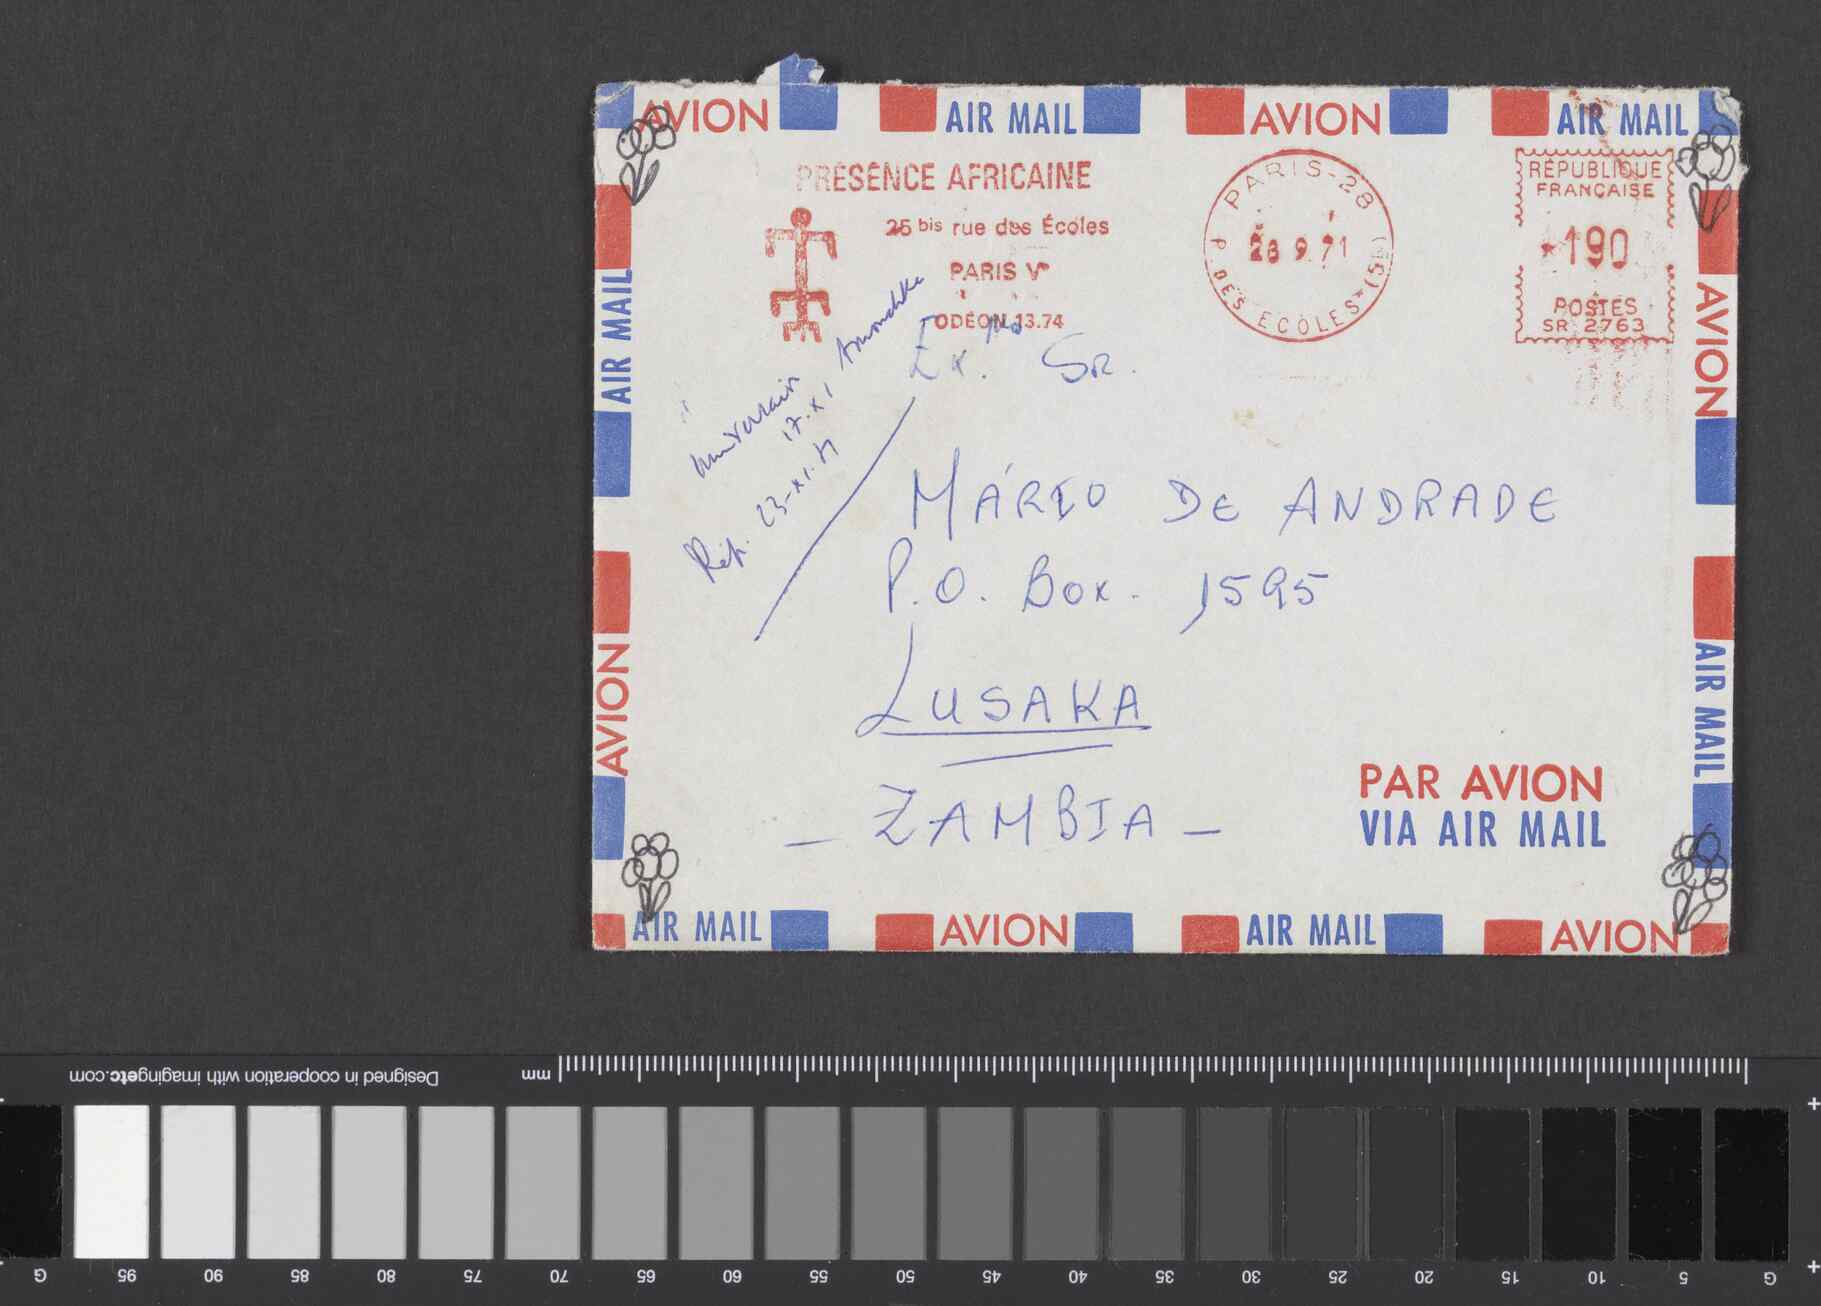 AVION AIR MAIL AVION AIR MAIL
PRÉSENCE AFRICAINE
25 bis rue des Écoles
PARIS Ve
ODÉON 13.74
PARIS-28
28 9.71
P. DES ECOLES * (5E)
RÉPUBLIQUE
FRANÇAISE
190
POSTES
SR 2763
Anouchka
17.XI
Rép. 23-XI-71
Ex.mo SR.
MÁRIO DE ANDRADE
P.O. Box. 1595
LUSAKA
- ZAMBIA -
PAR AVION
VIA AIR MAIL
AIR MAIL
AVION
AVION
AIR MAIL
AIR MAIL AVION AIR MAIL AVION
mm
Designed in cooperation with imagingetc.com
G 95 90 85 80 75 70 65 60 55 50 45 40 35 30 25 20 15 10 5 G